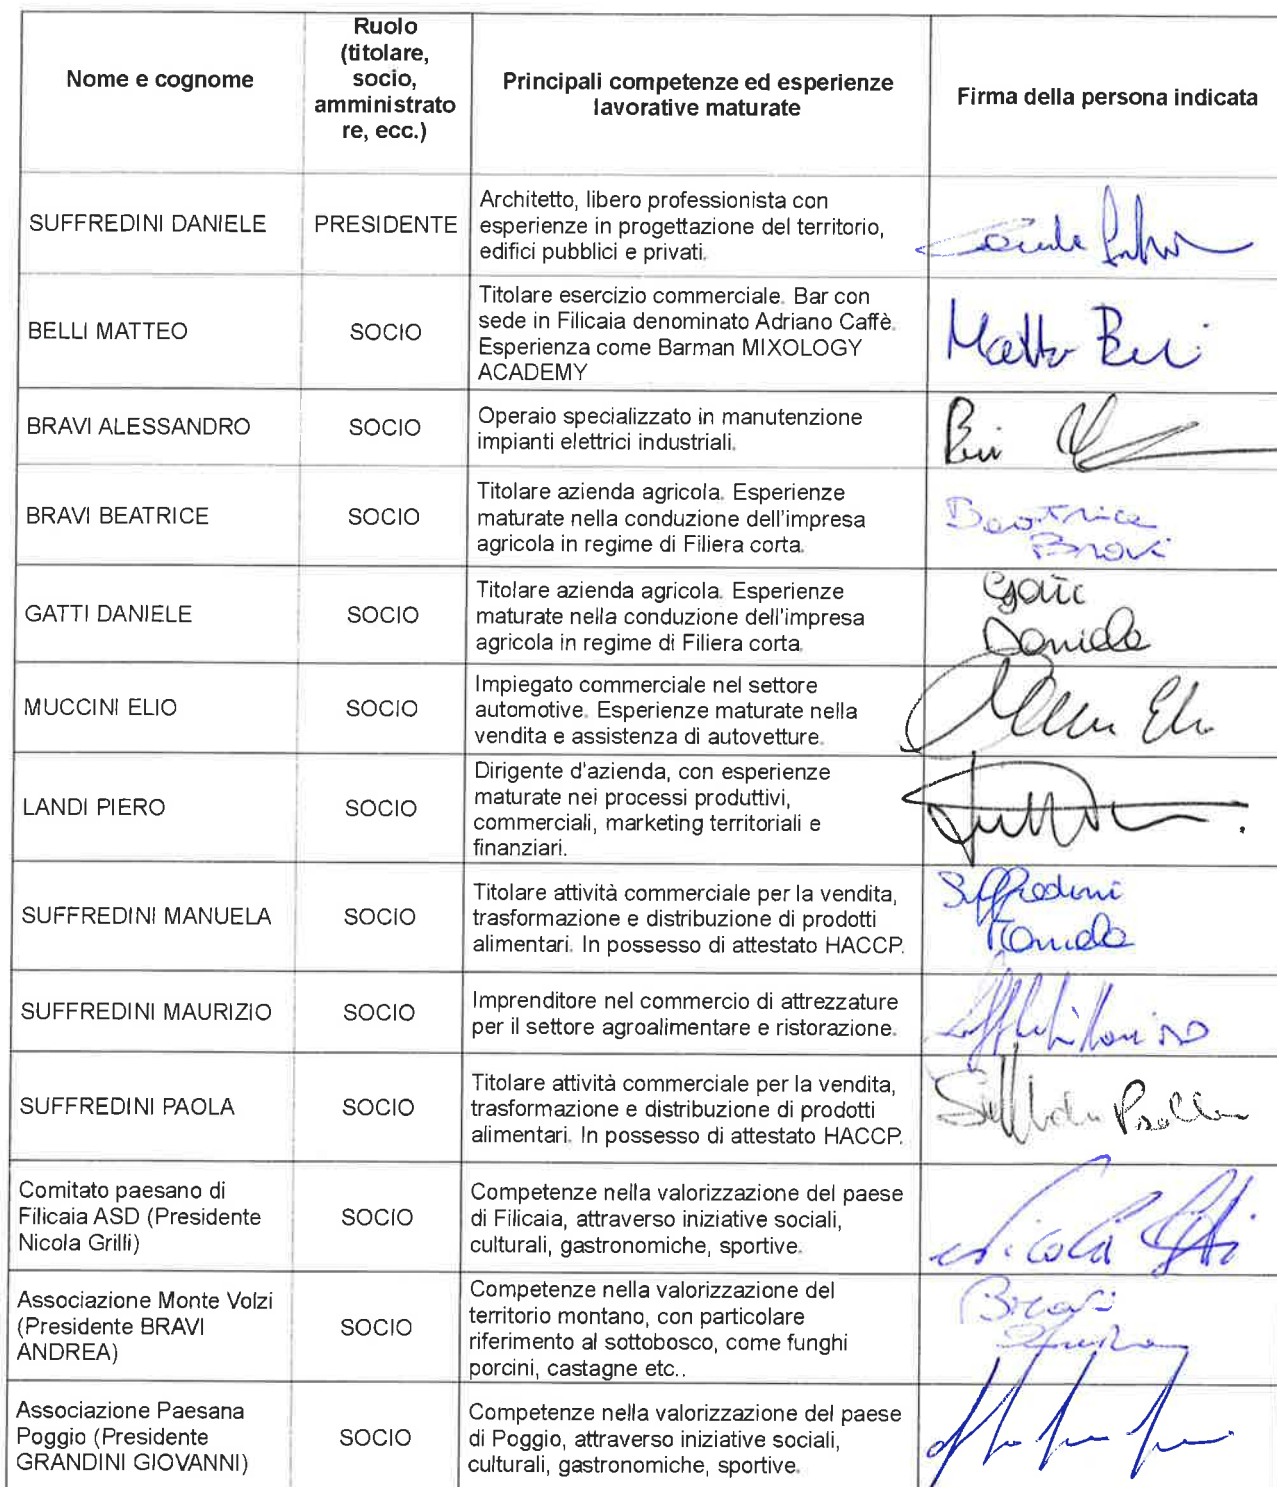 Nome e cognome
Ruolo
(titolare,
socio,
amministrato
re, ecc.)
Principali competenze ed esperienze
lavorative maturate
Firma della persona indicata
SUFFREDINI DANIELE
PRESIDENTE
Architetto, libero professionista con
esperienze in progettazione del territorio,
edifici pubblici e privati.
BELLI MATTEO
SOCIO
Titolare esercizio commerciale. Bar con
sede in Filicaia denominato Adriano Caffè.
Esperienza come Barman MIXOLOGY
ACADEMY
BRAVI ALESSANDRO
SOCIO
Operaio specializzato in manutenzione
impianti elettrici industriali.
BRAVI BEATRICE
SOCIO
Titolare azienda agricola. Esperienze
maturate nella conduzione dell'impresa
agricola in regime di Filiera corta.
Beatrice
Bravi
GATTI DANIELE
SOCIO
Titolare azienda agricola. Esperienze
maturate nella conduzione dell'impresa
agricola in regime di Filiera corta.
Gatti
Daniele
MUCCINI ELIO
SOCIO
Impiegato commerciale nel settore
automotive. Esperienze maturate nella
vendita e assistenza di autovetture.
LANDI PIERO
SOCIO
Dirigente d'azienda, con esperienze
maturate nei processi produttivi,
commerciali, marketing territoriali e
finanziari.
SUFFREDINI MANUELA
SOCIO
Titolare attività commerciale per la vendita,
trasformazione e distribuzione di prodotti
alimentari. In possesso di attestato HACCP.
Suffredini
SUFFREDINI MAURIZIO
SOCIO
Imprenditore nel commercio di attrezzature
per il settore agroalimentare e ristorazione.
SUFFREDINI PAOLA
SOCIO
Titolare attività commerciale per la vendita,
trasformazione e distribuzione di prodotti
alimentari. In possesso di attestato HACCP.
Comitato paesano di
Filicaia ASD (Presidente
Nicola Grilli)
SOCIO
Competenze nella valorizzazione del paese
di Filicaia, attraverso iniziative sociali,
culturali, gastronomiche, sportive.
Nicola
Associazione Monte Volzi
(Presidente BRAVI
ANDREA)
SOCIO
Competenze nella valorizzazione del
territorio montano, con particolare
riferimento al sottobosco, come funghi
porcini, castagne etc..
Associazione Paesana
Poggio (Presidente
GRANDINI GIOVANNI)
SOCIO
Competenze nella valorizzazione del paese
di Poggio, attraverso iniziative sociali,
culturali, gastronomiche, sportive.